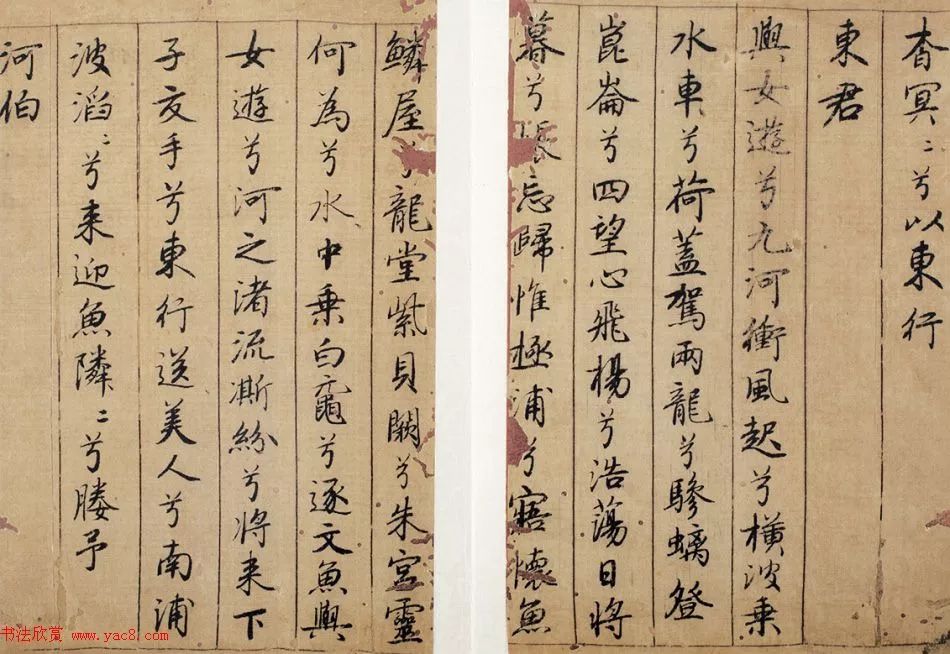 杳冥〻兮以東行
東君
與女遊兮九河衝風起兮橫波乗
水車兮荷蓋駕兩龍兮驂螭登
崑崙兮四望心飛楊兮浩蕩日將
暮兮悵忘歸惟極浦兮寤懷魚
鱗屋兮龍堂紫貝闕兮朱宮靈
何為兮水中乗白黿兮逐文魚與
女遊兮河之渚流澌紛兮將来下
子交手兮東行送美人兮南浦
波滔〻兮来迎魚隣〻兮媵予
河伯
书法欣赏 www.yac8.com